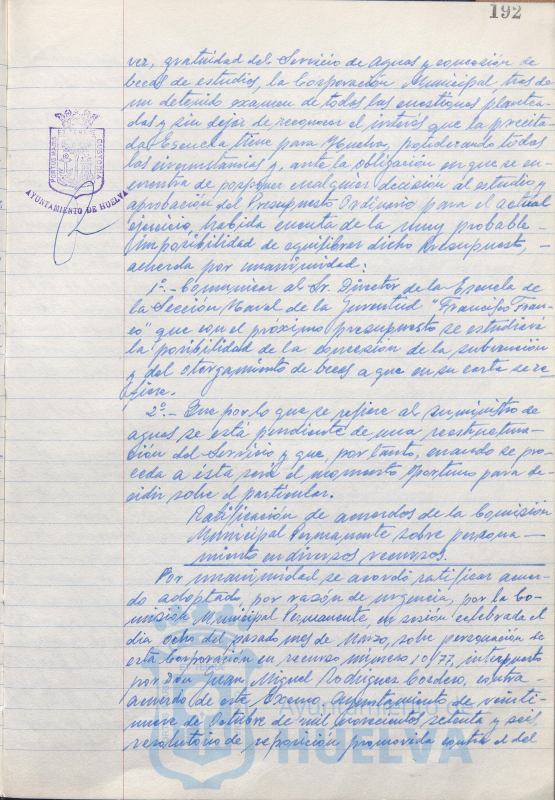 192
vez, gratuidad del Servicio de Aguas y concesión de
becas de estudios, la Corporación Municipal, tras de
un detenido examen de todas las cuestiones plantea-
das y sin dejar de reconocer el interés que la precita-
da Escuela tiene para Huelva, ponderando todas
las circunstancias y, ante la obligación en que se en-
cuentra de posponer cualquier decisión al estudio y
aprobación del Presupuesto Ordinario para el actual
ejercicio, habida cuenta de la muy probable
imposibilidad de equilibrar dicho Presupuesto, -
acuerda por unanimidad:
1º.- Comunicar al Sr. Director de la Escuela de
la Sección Naval de la Juventud "Francisco Fran-
co" que con el próximo presupuesto se estudiará
la posibilidad de la concesión de la subvención
y del otorgamiento de becas a que en su carta se re-
fiere.
2º.- Que por lo que se refiere al suministro de
aguas se está pendiente de una reestructura-
ción del Servicio y que, por tanto, cuando se pro-
ceda a ésta será el momento oportuno para de-
cidir sobre el particular.
Ratificación de acuerdos de la Comisión
Municipal Permanente sobre persona-
miento en diversos recursos.
Por unanimidad se acordó ratificar acuer-
do adoptado, por razón de urgencia, por la Co-
misión Municipal Permanente, en sesión celebrada el
día ocho del pasado mes de Marzo, sobre personación de
esta Corporación en recurso número 10/77, interpuesto
por Don Juan Miguel Rodríguez Cordero, contra
acuerdo de este Excmo. Ayuntamiento de veinti-
nueve de Octubre de mil novecientos setenta y seis,
resolutorio de reposición promovida contra el del
PORTUS MARIS ET TERRAE CUSTODIA
AYUNTAMIENTO DE HUELVA
Ayuntamiento de
HUELVA